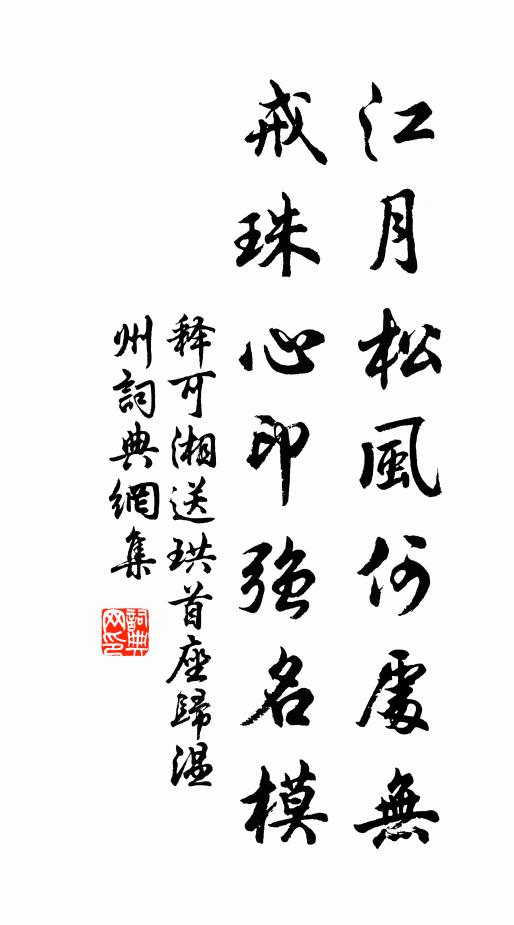 江月松風何處無
戒珠心印強名模
释可湘送珙首座歸温
州詞典網集
詞典
网印